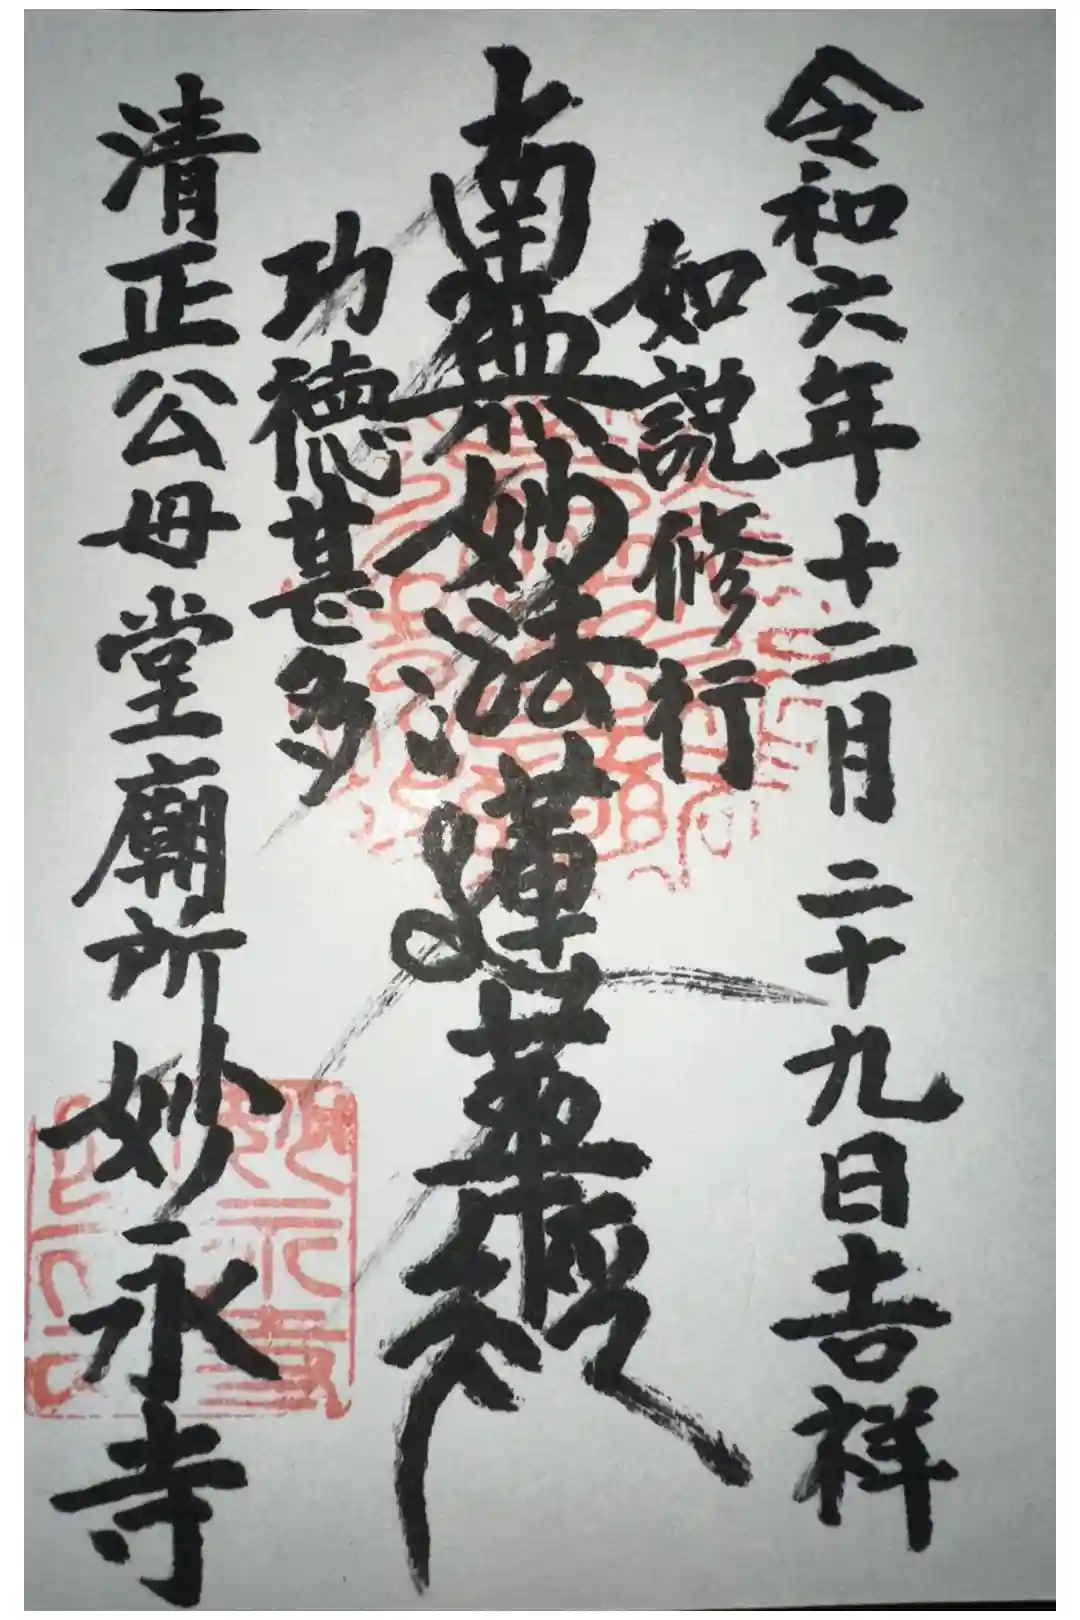 令和六年十二月二十九日吉祥
如説修行
南無妙法蓮華経
功徳甚多
清正公母堂廟所 妙永寺